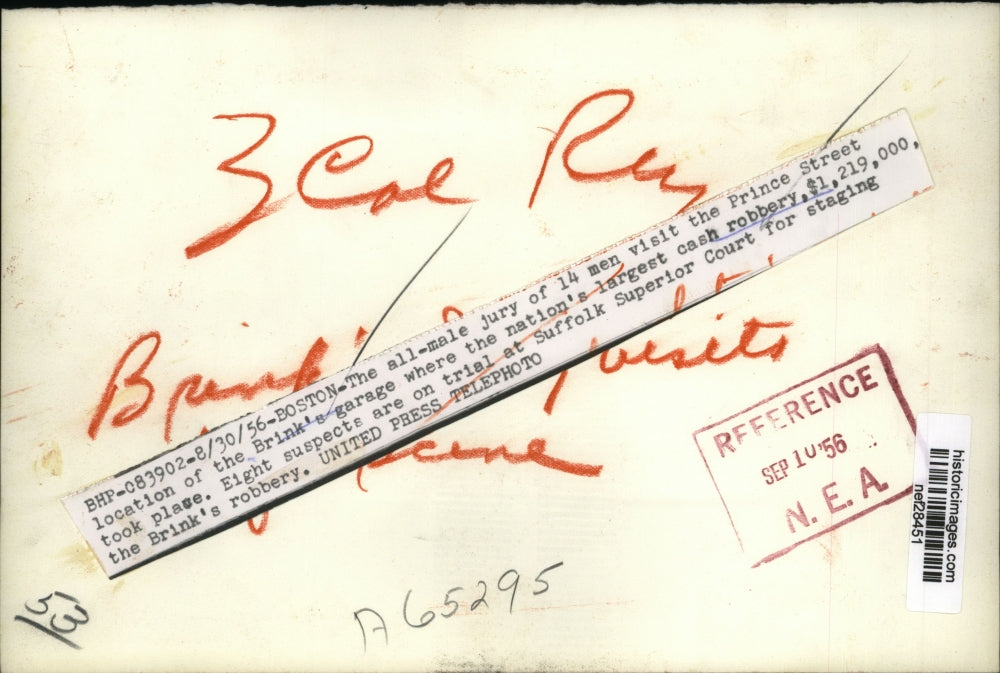 3 Col
BHP-083902-8/30/56-BOSTON-The all-male jury of 14 men visit the Prince Street
location of the Brink's garage where the nation's largest cash robbery, $1,219,000,
took place. Eight suspects are on trial at Suffolk Superior Court for staging
the Brink's robbery. UNITED PRESS TELEPHOTO
Brink's
visits
scene
REFERENCE
SEP 10 '56
N. E. A.
historicimages.com
nef28451
53
A65295